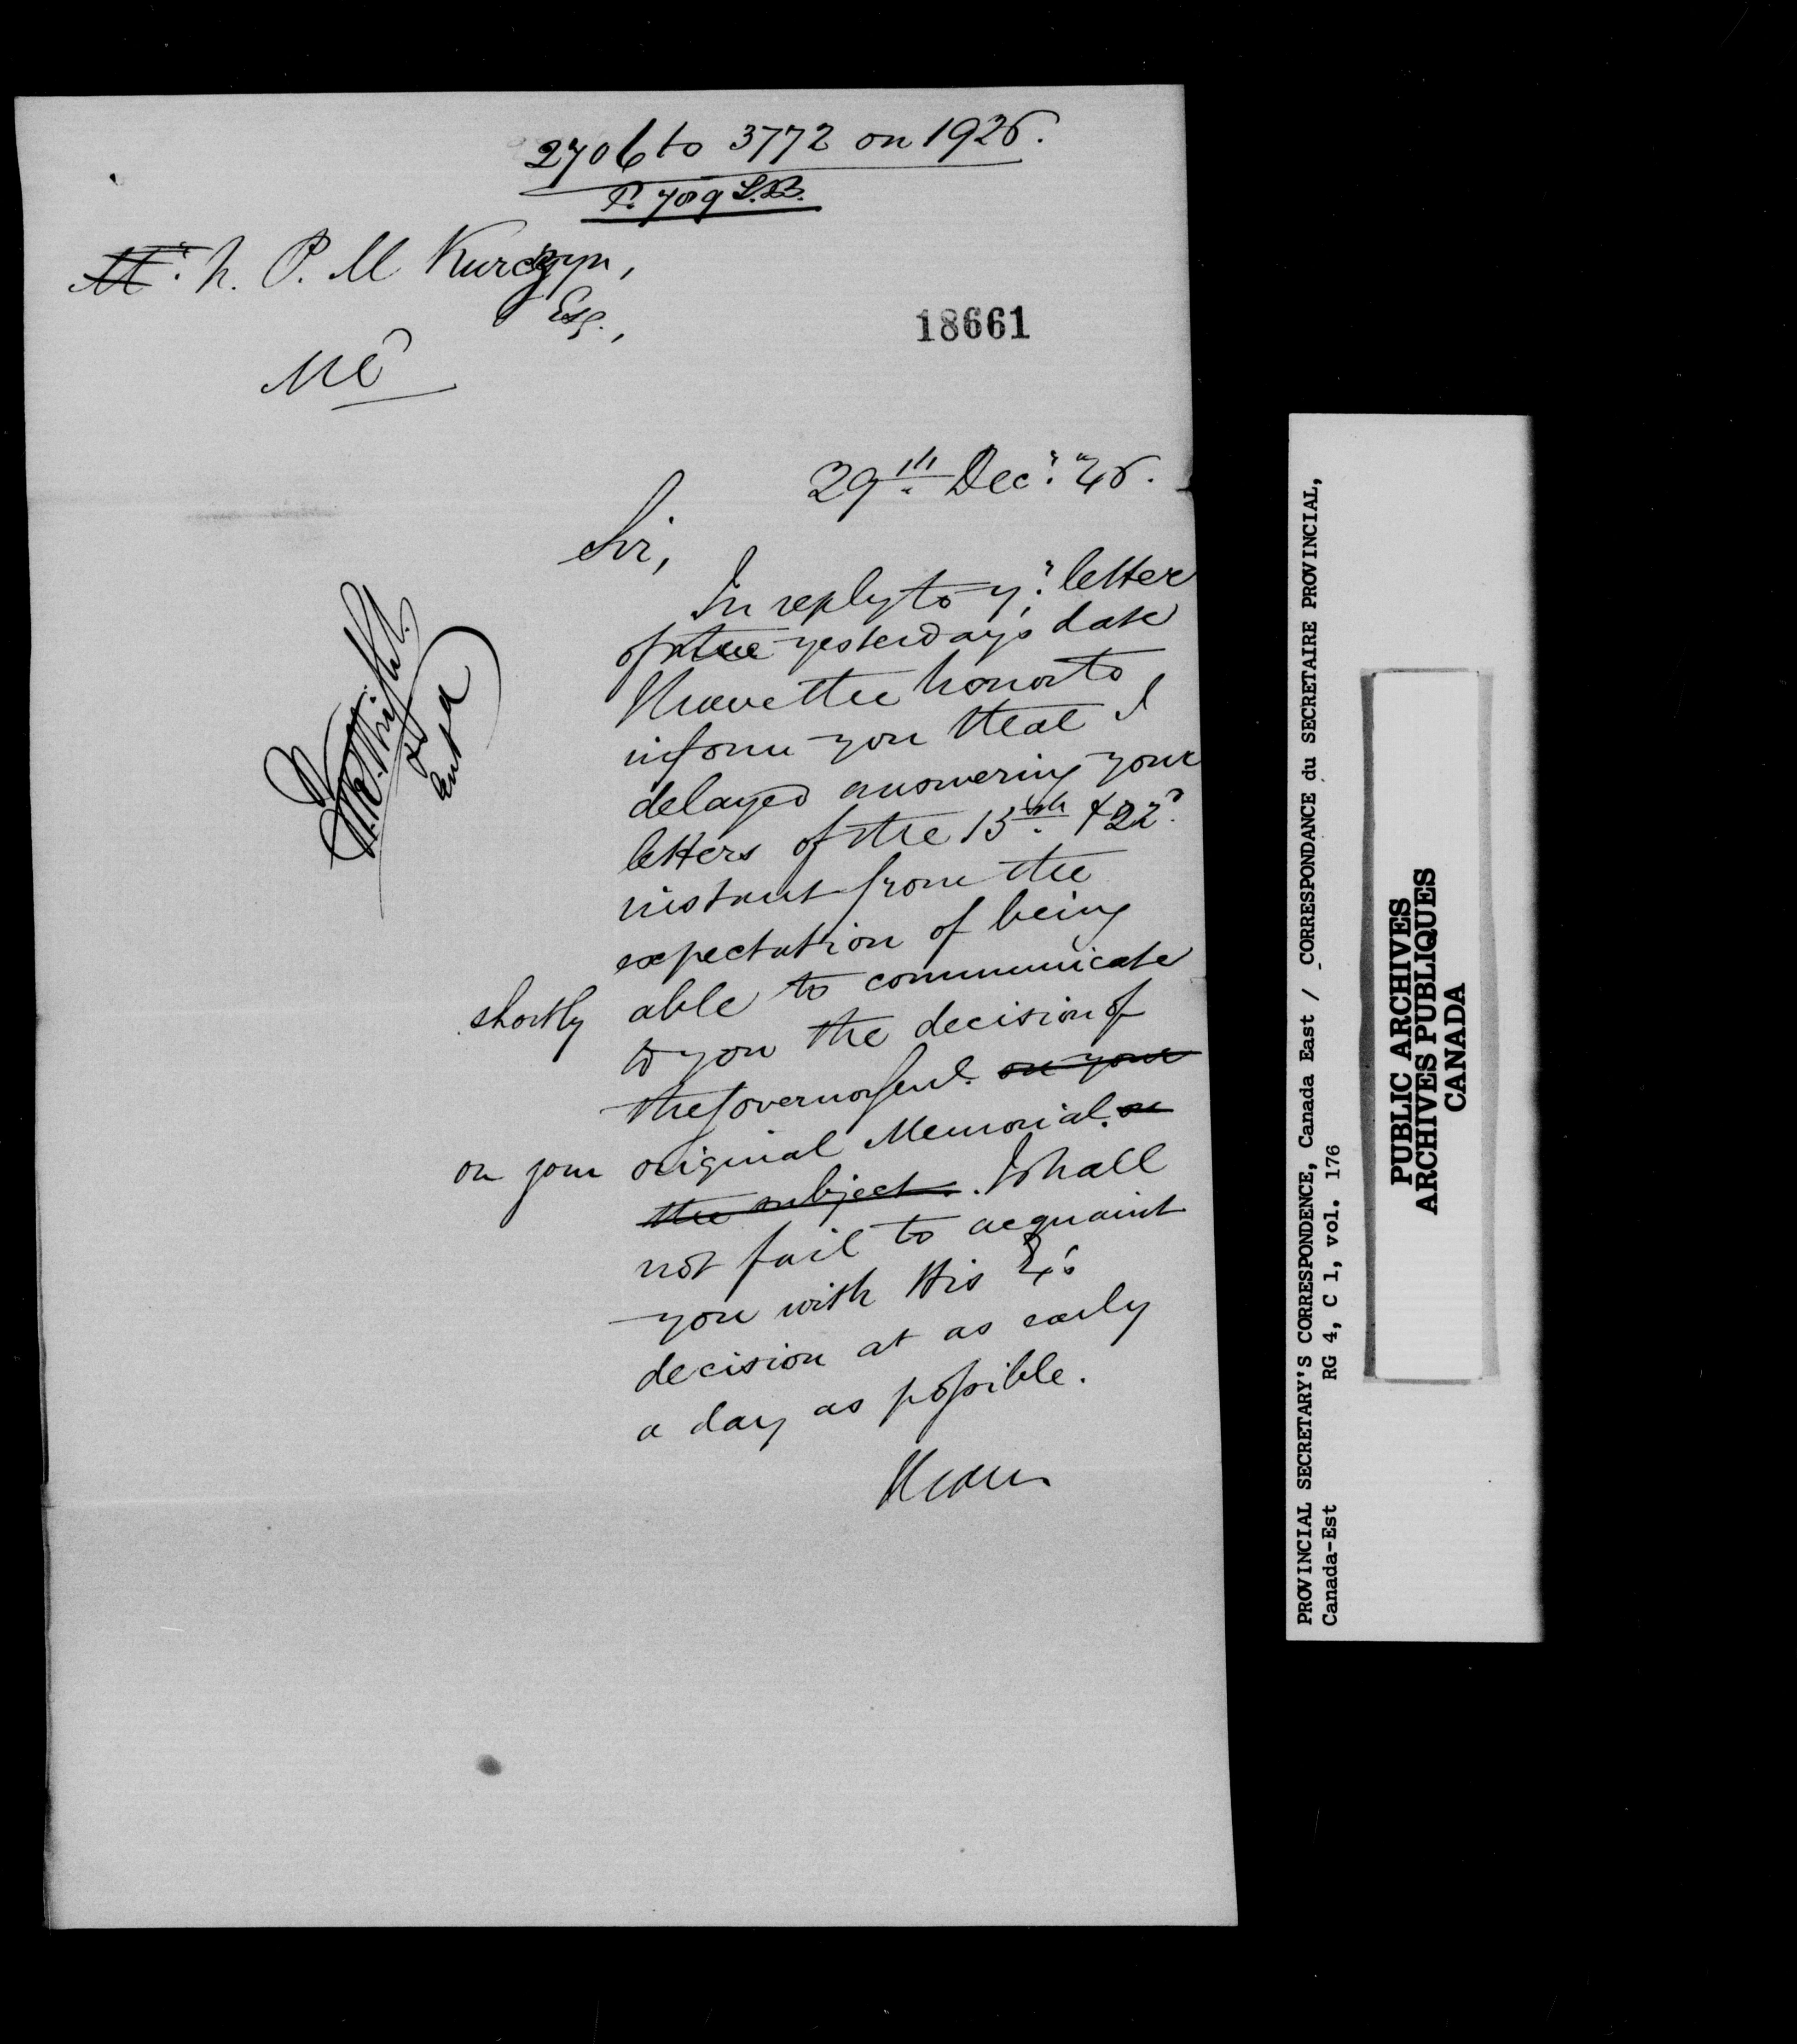 2706 to 3772 on 1926.
P. 709 L.B.
N. P. M Kurczyn,
Esq.,
18661
29th Decr. 46.
Sir,
In reply to yr. letter
of the yesterday's date
I have the honor to
inform you that I
delayed answering your
letters of the 15th & 22d
instant from the
expectation of being
shortly able to communicate
to you the decision of
the Governor Genl. on your
on your original Memorial. on
the subject. I shall
not fail to acquaint
you with His Ex's
decision at as early
a day as possible.
I have
Entd
PROVINCIAL SECRETARY'S CORRESPONDENCE, Canada East / CORRESPONDANCE du SECRETAIRE PROVINCIAL,
Canada-Est RG 4, C 1, vol. 176
PUBLIC ARCHIVES
ARCHIVES PUBLIQUES
CANADA